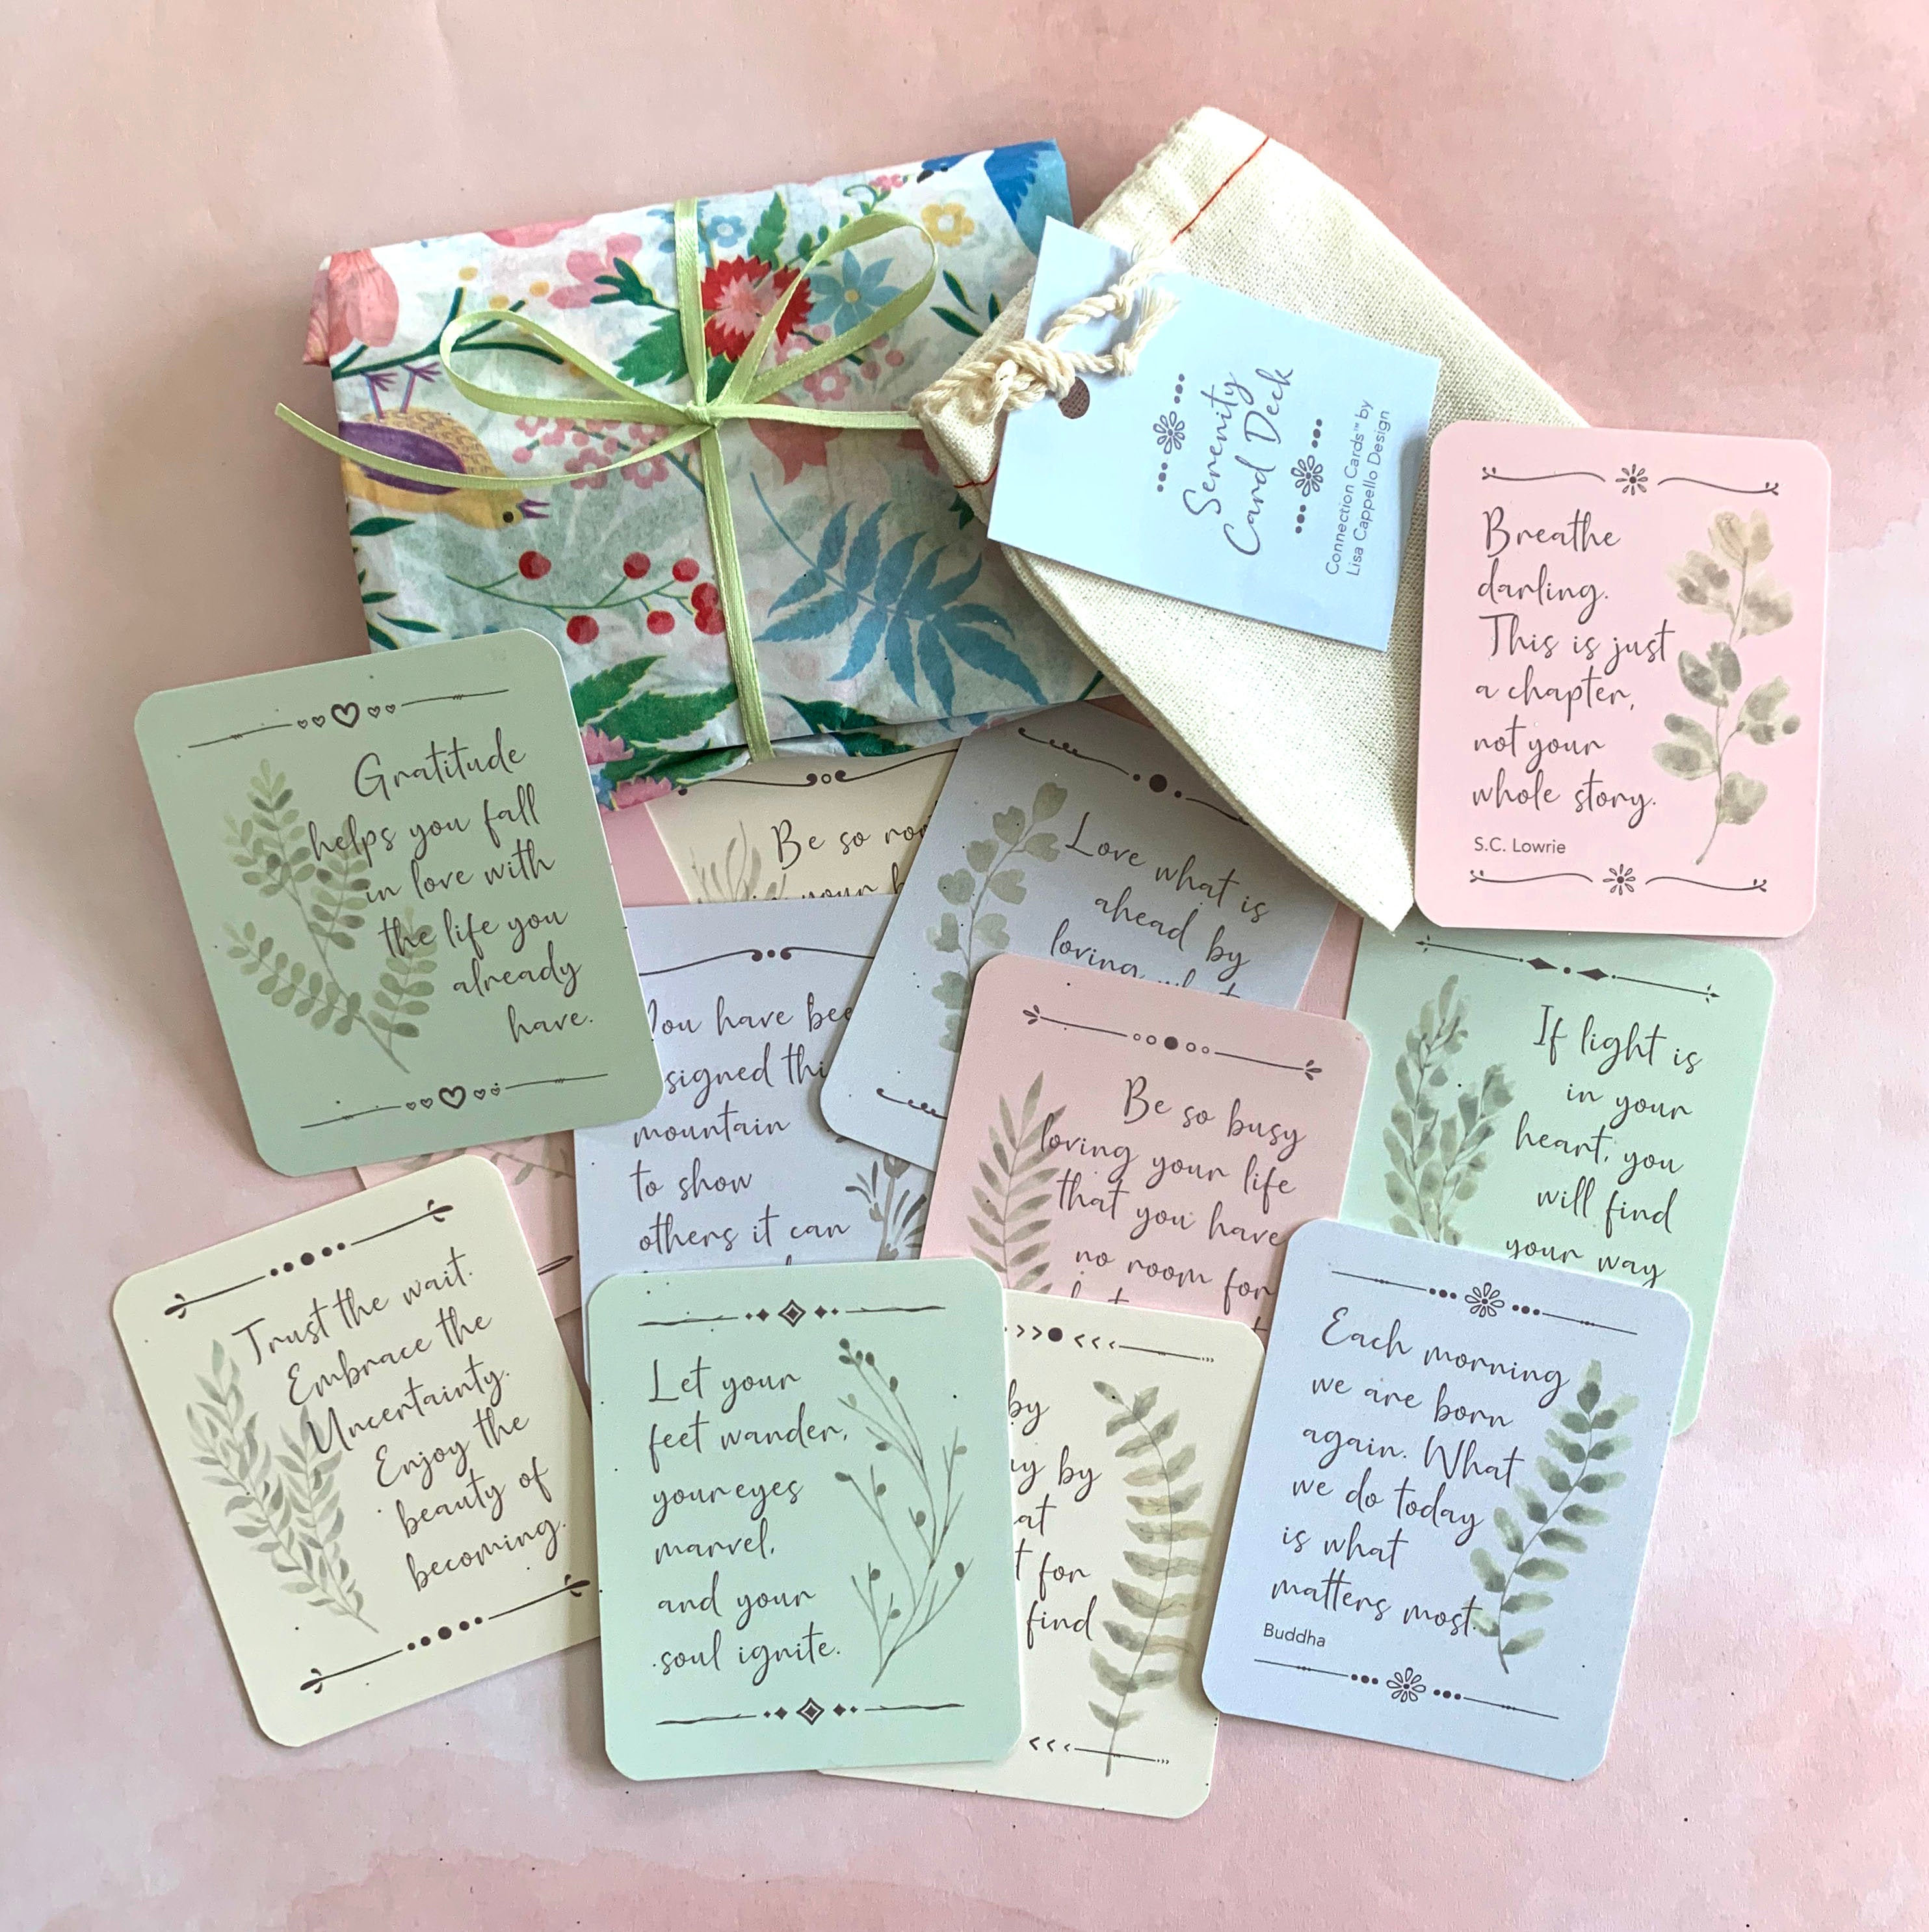 Serenity
Card Deck
Connection Cards™ by
Lisa Cappello Design
Breathe
darling.
This is just
a chapter,
not your
whole story.
S.C. Lowrie
Gratitude
helps you fall
in love with
the life you
already
have.
Be so
in your
Love what is
ahead by
loving what
You have been
signed this
mountain
to show
others it can
Be so busy
loving your life
that you have
no room for
If light is
in your
heart, you
will find
your way
Trust the wait.
Embrace the
Uncertainty.
Enjoy the
beauty of
becoming.
Let your
feet wander,
your eyes
marvel,
and your
soul ignite.
by
by
for
find
Each morning
we are born
again. What
we do today
is what
matters most.
Buddha